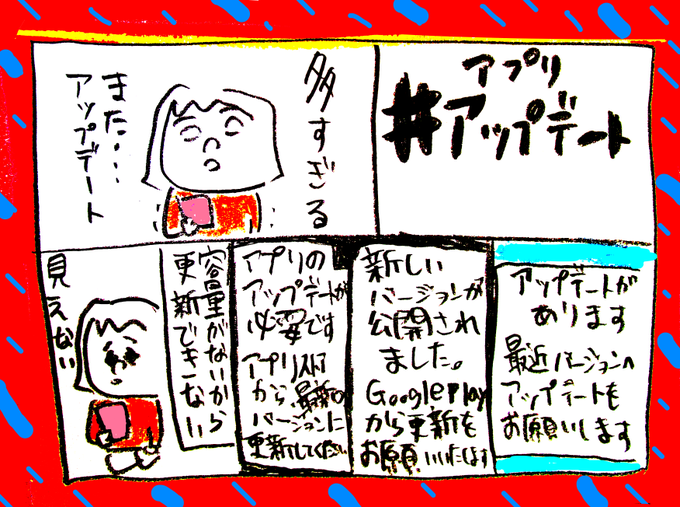 アプリ
#アップデート
多すぎる
また・・・
アップデート
アップデートが
あります
最近バージョンへ
アップデートを
お願いします
新しい
バージョンが
公開され
ました。
GooglePlay
から更新を
お願いいたします
アプリの
アップデートが
必要です
アプリストア
から、最新の
バージョンに
更新してください
容量がないから
更新できない
見えない